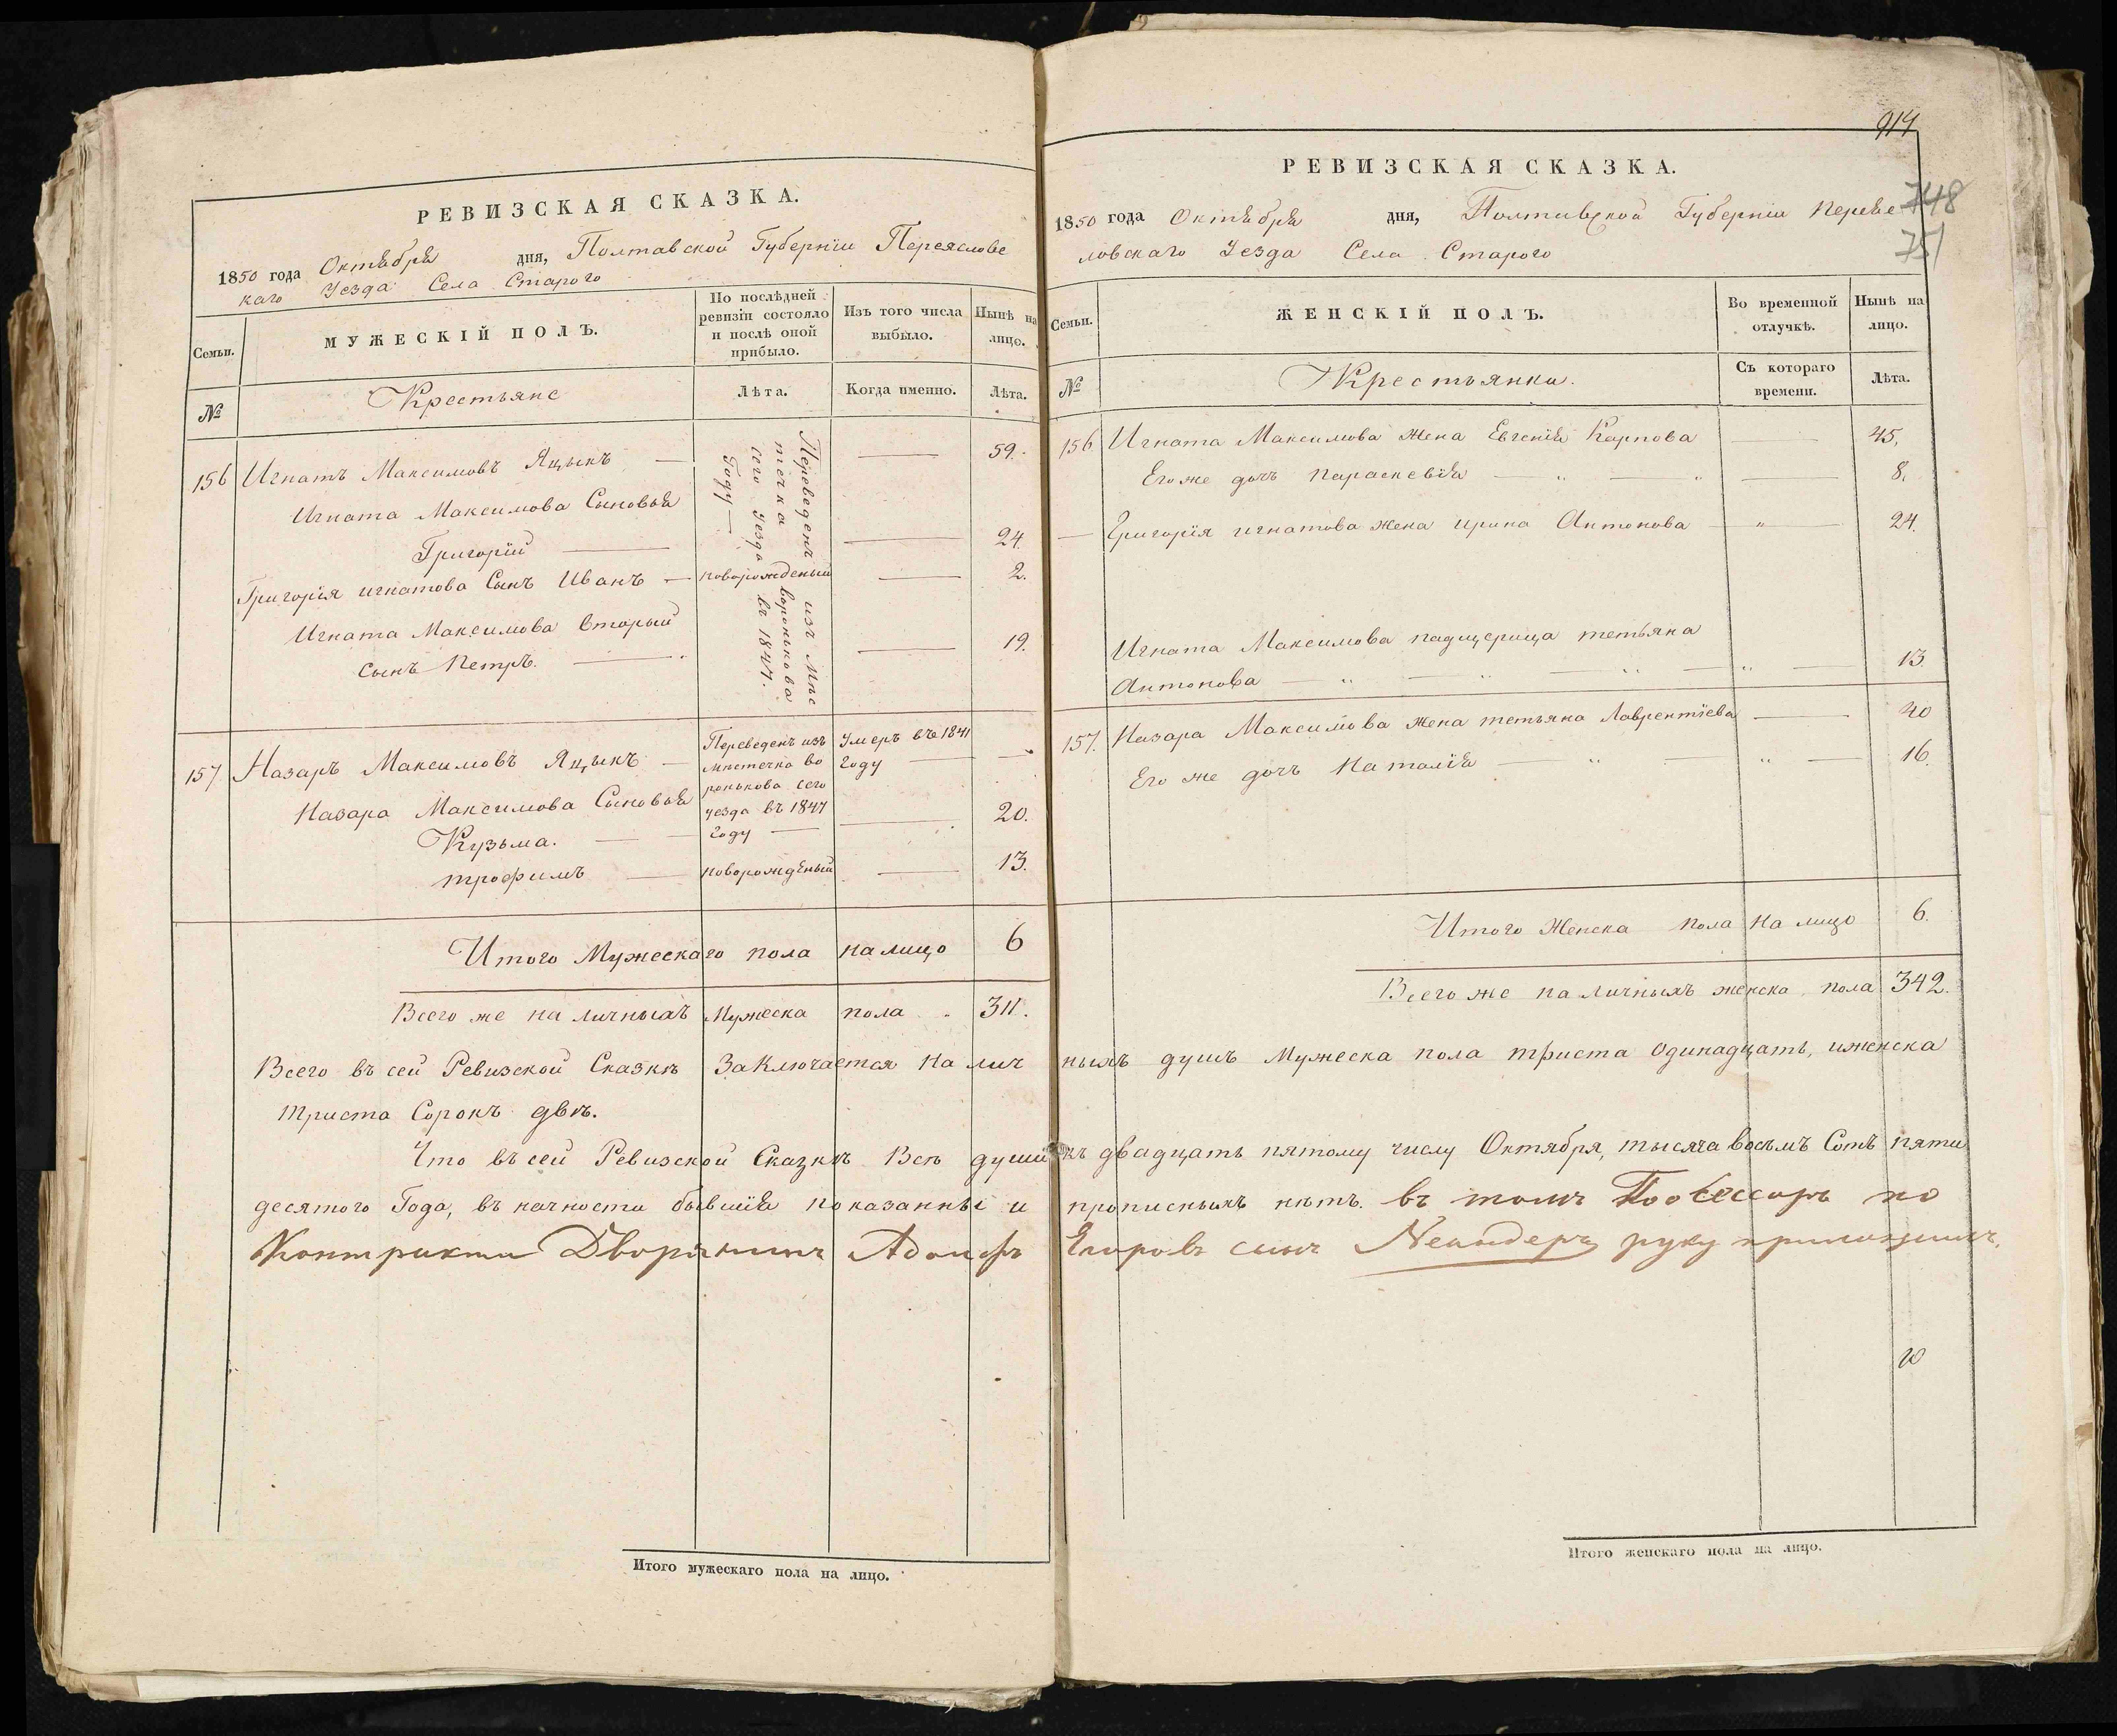 РЕВИЗСКАЯ СКАЗКА.
1850 года Октября дня, Полтавской Губерніи Переяслове
каго Уезда Села Старого
Семьи.
МУЖЕСКІЙ ПОЛЪ.
По послѣдней ревизіи состояло и послѣ оной прибыло.
Изъ того числа выбыло.
Нынѣ на лицо.
№
Крестьяне
Лѣта.
Когда именно.
Лѣта.
156 Игнатъ Максимовъ Яцыкъ — 59.
Переведенъ изъ Мѣс
течка воронькова
сего уезда въ 1847.
Году —
Игната Максимова Сыновья
Григорій — 24.
Григорія игнатова Сынъ Иванъ — новорожденый — 2.
Игната Максимова вторый
сынъ Петръ. — 19.
157 Назаръ Максимовъ Яцыкъ —
Переведенъ изъ
мѣстечка во
ронькова сего
уезда въ 1847
Году —
Умеръ въ 1841
Году —
Назара Максимова Сыновья
Кузьма. — 20.
трофимъ — новорожденый — 13.
Итого Мужескаго пола на лицо 6
Всего же на личныхъ Мужеска пола 311.
Итого мужескаго пола на лицо.
919
748
751
РЕВИЗСКАЯ СКАЗКА.
1850 года Октября дня, Полтавской Губерніи
ловскаго Уезда Села Старого
Семьи.
ЖЕНСКІЙ ПОЛЪ.
Во временной отлучкѣ.
Нынѣ на лицо.
№
Крестьянки.
Съ котораго времени.
Лѣта.
156 Игната Максимова жена Евгенія Карпова — 45.
Его же дочь Параскевія — " — " — 8.
— Григорія игнатова жена ирина Антонова — " — 24.
Игната Максимова падщерица тетьяна
Антонова — " — " — " — " — 13.
157. Назара Максимова жена тетьяна Лаврентіева — 40
Его же дочь Наталія — " — " — 16.
Итого Женска пола на лицо 6.
Всего же на личныхъ женска пола 342.
Всего въ сей Ревизской Сказкѣ Заключается на лич ныхъ душъ Мужеска пола триста одинадцать, иженска
триста Сорокъ двѣ.
Что въ сей Ревизской Сказкѣ Всѣ души къ двадцать пятому числу Октября, тысяча восьмъ Сотъ пяти
десятого Года, въ начности бывшія показанны и прописныхъ нѣтъ. въ томъ Посессоръ по
Контракти Дворянинъ Адольфъ Егоровъ сынъ руку приложилъ.
Итого женскаго пола на лицо.